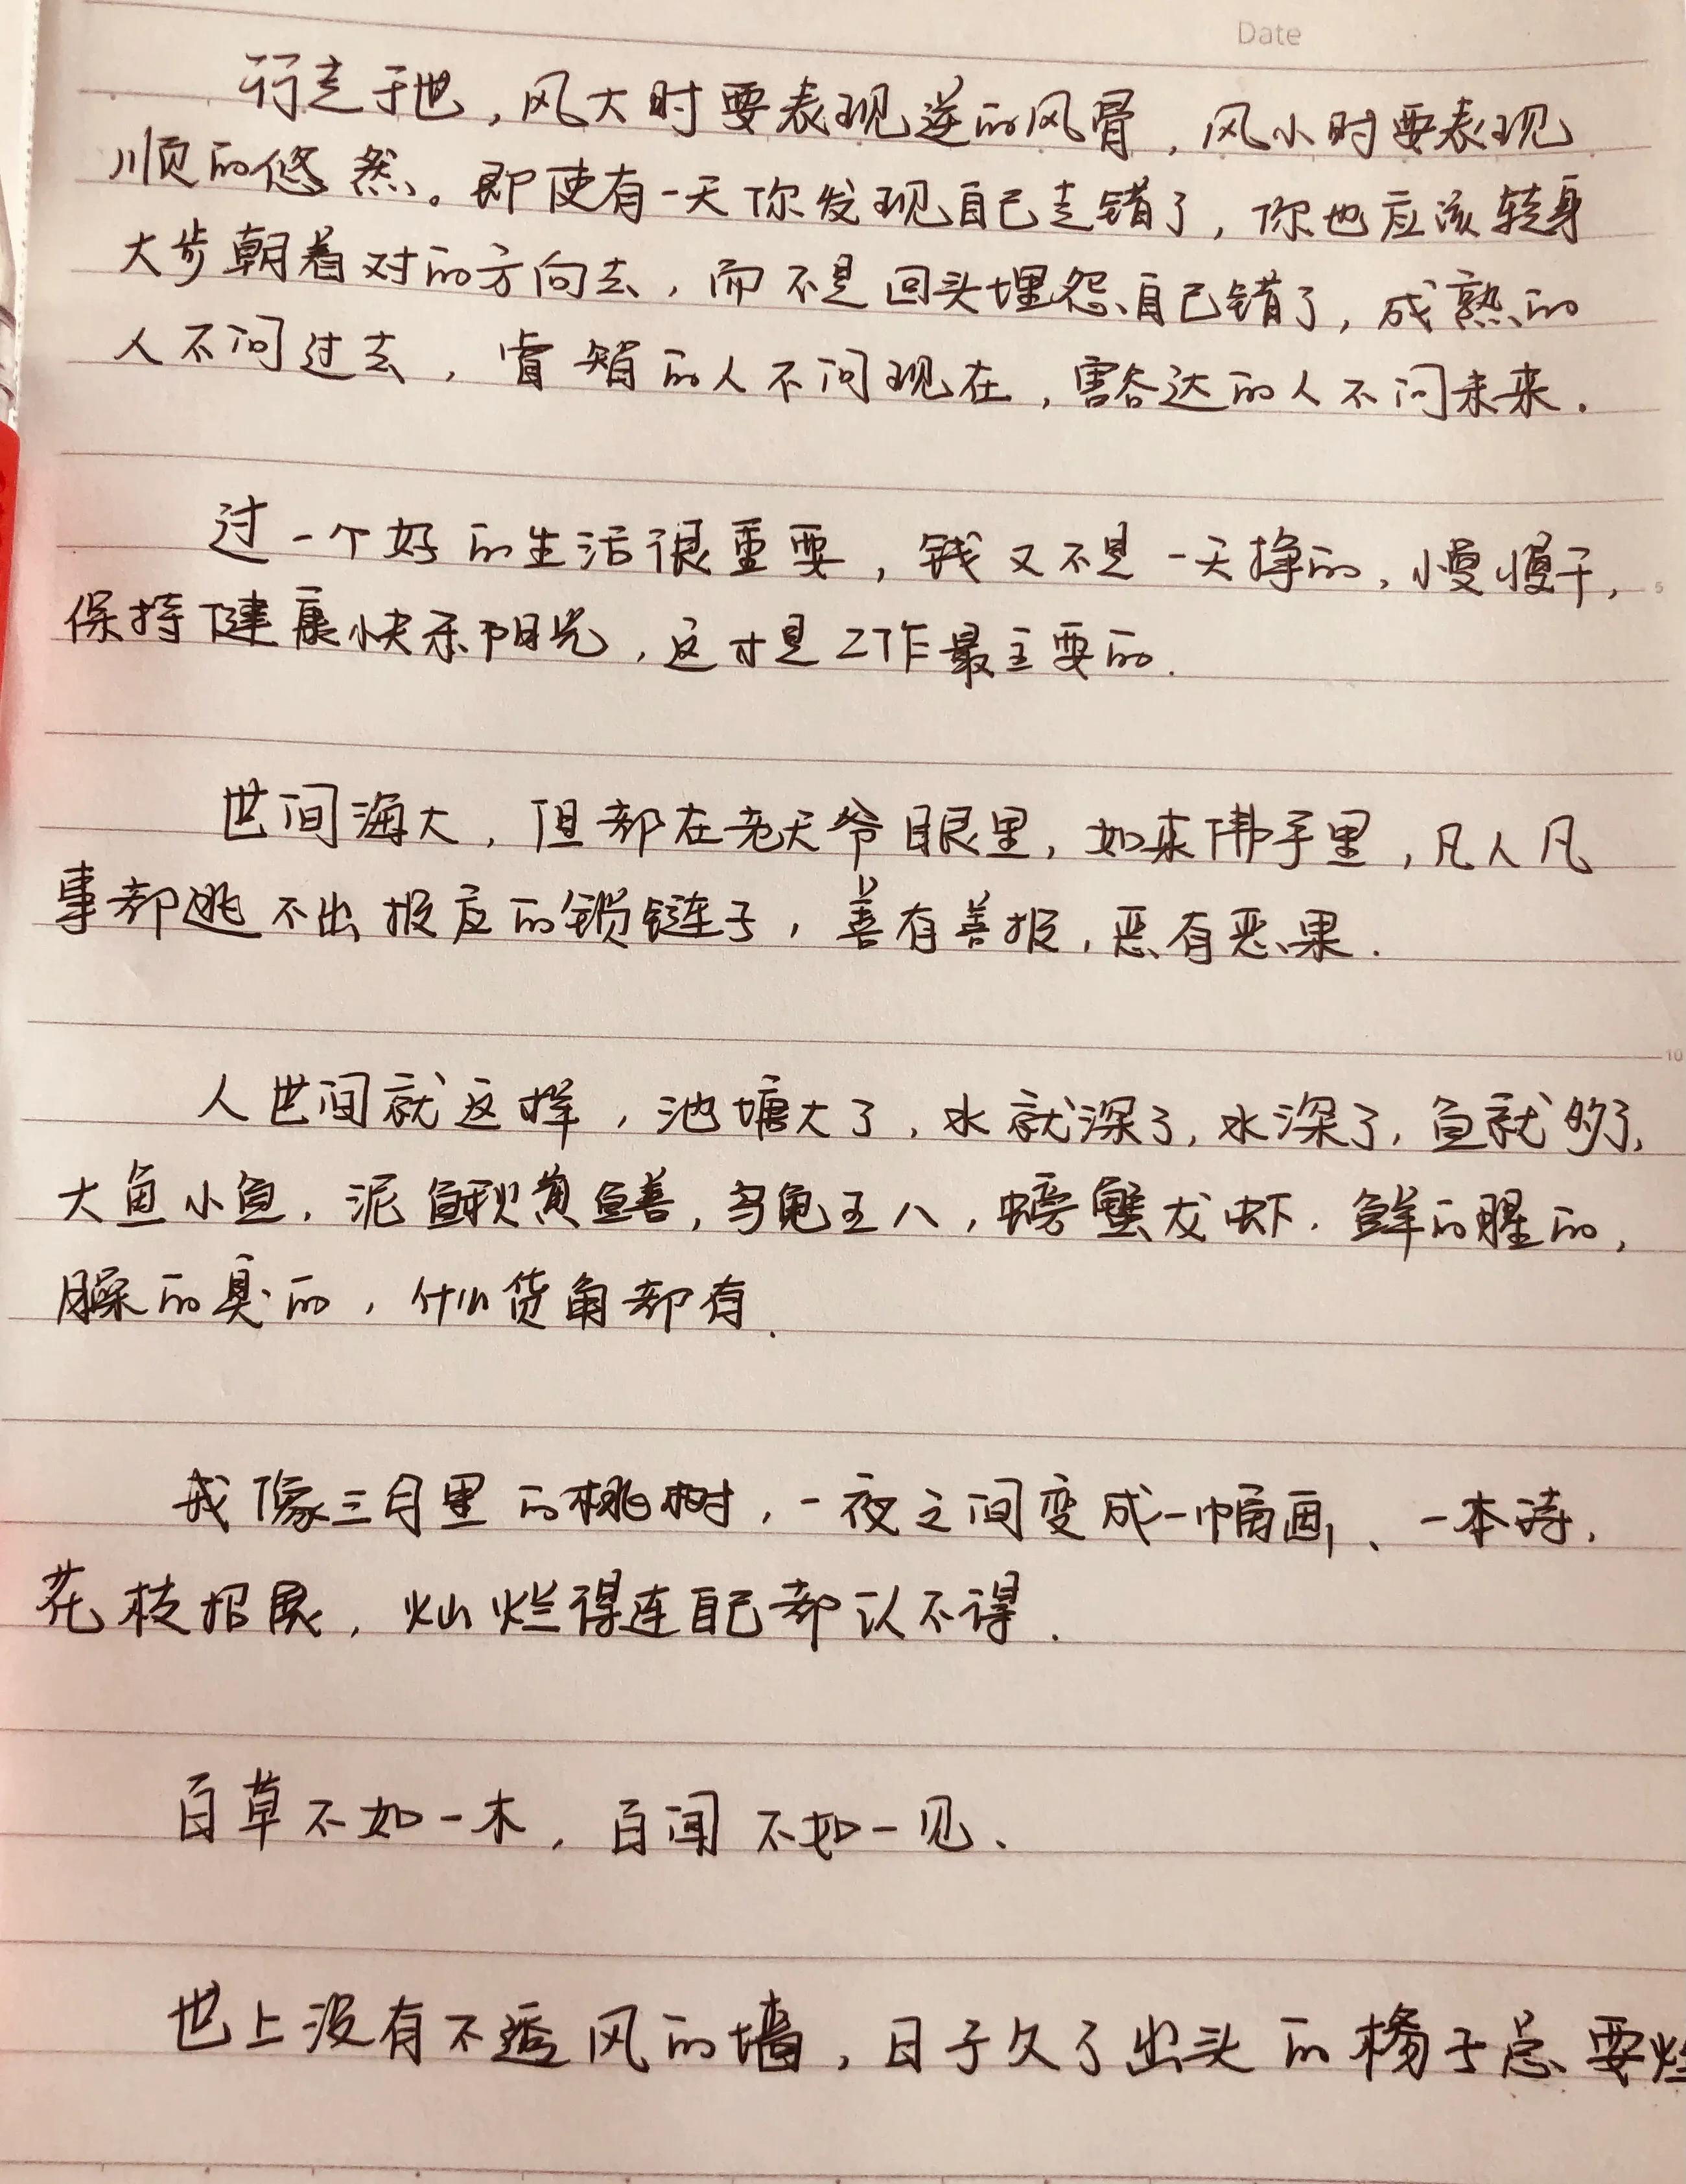 Date
行走于世，风大时要表现逆的风骨，风小时要表现
顺的悠然。即使有一天你发现自己走错了，你也应该转身
大步朝着对的方向去，而不是回头埋怨自己错了，成熟的
人不问过去，睿智的人不问现在，豁达的人不问未来.
过一个好的生活很重要，钱又不是一天挣的，慢慢干，
5
保持健康快乐阳光，这才是工作最主要的.
世间海大，但都在老天爷眼里，如来佛手里，凡人凡
事都逃不出报应的锁链子，善有善报，恶有恶果.
10
人世间就这样，池塘大了，水就深了，水深了，鱼就多了，
大鱼小鱼，泥鳅黄鳝，乌龟王八，螃蟹龙虾．鲜的腥的，
臊的臭的，什么货角都有.
我像三月里的桃树，一夜之间变成一幅画、一本诗，
花枝招展，灿烂得连自己都认不得.
百草不如一木，百闻不如一见、
世上没有不透风的墙，日子久了出头的椽子总要烂